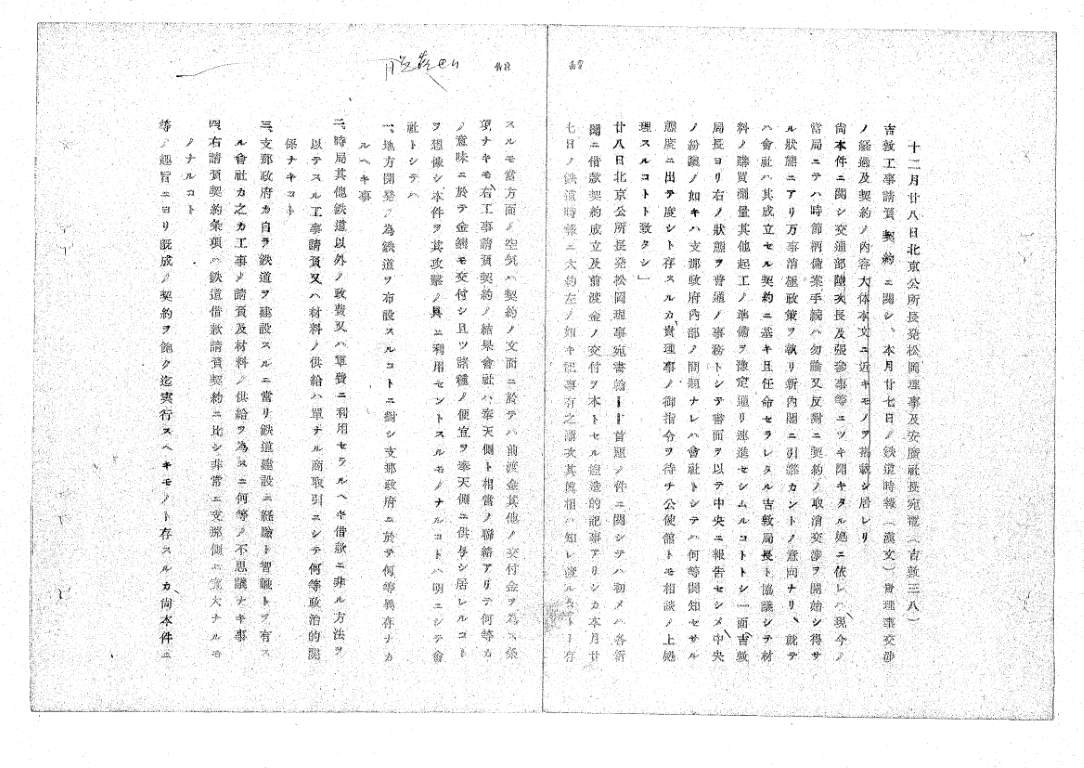 十二月廿八日北京公所長発松岡理事及安廣社長宛電（吉敦三八）
吉敦工事請負契約ニ関シ、本月廿七日ノ鉄道時報（漢文）ニ貴理事交渉
ノ経過及契約ノ内容大体本文ニ近キモノヲ掲載シ居レリ
尚本件ニ関シ交通部陸次長及張参事等ニツキ聞キタル処ニ依レハ現今ノ
當局ニテハ時節柄備案手続ハ勿論又反對ニ契約ノ取消交渉ヲ開始シ得サ
ル狀態ニアリ万事消極政策ヲ執リ新内閣ニ引継カントノ意向ナリ、就テ
ハ會社ハ其成立セル契約ニ基キ且任命セラレタル吉敦局長ト協議シテ材
料ノ購買測量其他起工ノ準備ヲ豫定通リ進セシムルコトトシ一面吉敦
局長ヨリ右ノ狀態ヲ普通ノ事務トシテ書面ヲ以テ中央ニ報告セシメ中央
ノ紛議ノ如キハ支那政府内部ノ問題ナレハ會社トシテハ何等関知セサル
態度ニ出テ度シト存スルカ貴理事ノ御指令ヲ待チ公使館トモ相談ノ上処
理スルコトト致タシ」
廿八日北京公所長発松岡理事宛書翰――首題ノ件ニ関シテハ初メハ各新
聞ニ借款契約成立及前渡金ノ交付ヲ本トセル造的記事アリシカ本月廿
七日ノ鉄道時報ニ大約左ノ如キ記事有之漸次其真相ハ知レ渡ルト存
スルモ當方面ノ空気ハ契約ノ文面ニ於テハ前渡金其他ノ交付金ヲ為ス條
項ナキモ右工事請負契約ノ結果會社ハ奉天側ト相當ノ聯絡アリテ何等カ
ノ意味ニ於テ金銭モ交付シ且ツ諸種ノ便宜ヲ奉天側ニ供与シ居レルコト
ヲ想像シ本件ヲ其攻撃ノ具ニ利用セントスルモノナルコトハ明ニシテ會
社トシテハ
一、地方開発ノ為鉄道ヲ布設スルコトニ對シ支那政府ニ於テ何等異存ナカ
ルヘキ事
二、時局其他鉄道以外ノ政費又ハ軍費ニ利用セラルヘキ借款ニ非ル方法ヲ
以テスル工事請負又ハ材料ノ供給ハ單ナル商取引ニシテ何等政治的関
係ナキコト
三、支那政府カ自ラ鉄道ヲ建設スルニ當リ鉄道建設ニ経験ト智識トヲ有ス
ル會社カ之カ工事ノ請負及材料ノ供給ヲ為スニ何等ノ不思議ナキ事
四、右請負契約条項ハ鉄道借款請負契約ニ比シ非常ニ支那側ニ寛大ナルモ
ノナルコト
等ノ趣旨ニヨリ既成ノ契約ヲ飽ク迄実行スヘキモノト存スルカ尚本件ニ